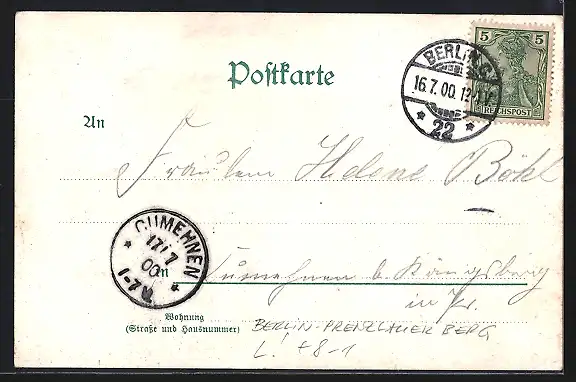 5
REICHSPOST
BERLIN C
16.7.00.12-1N.
* 22 *
Postkarte
An
Fräulein Helene Böhl
* CUMEHNEN *
17/7
00
1-7
in Cumehnen b. Königsberg
in Pr.
Wohnung
(Straße und Hausnummer)
BERLIN-PRENZLAUER BERG
L! +8-1